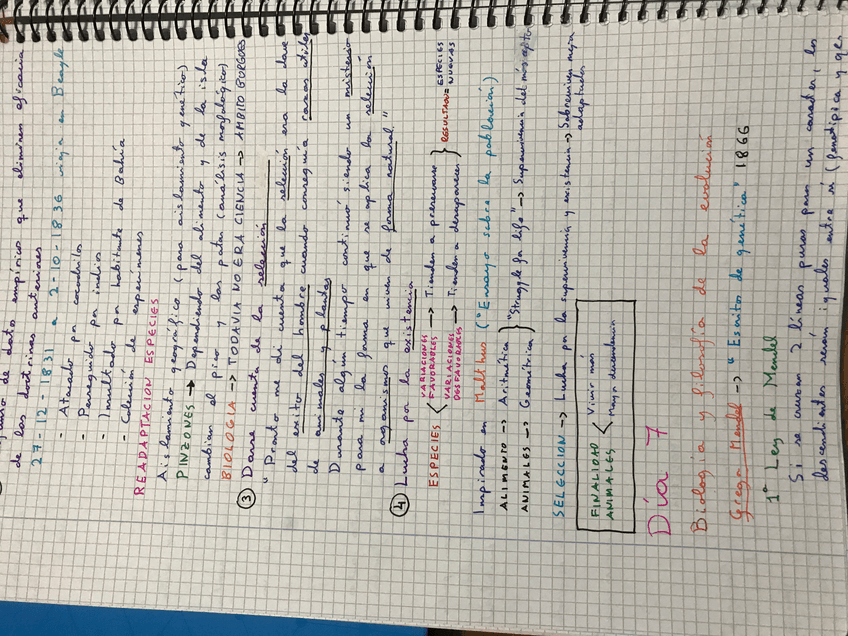 de datos empíricos que eliminen eficacia
de las doctrinas anteriores
27-12-1831 a 2-10-1836 viaja en Beagle
- Atacado por cocodrilo
- Perseguido por indios
- Insultado por habitante de Bahía
- Colección de especímenes
READAPTACION ESPECIES
Aislamiento geográfico (para aislamiento genético)
PINZONES → Dependiendo del alimento y de la isla
cambian el pico y las patas (análisis morfológico)
BIOLOGIA → TODAVIA NO ERA CIENCIA → AMBITO BURGUES
③ Darse cuenta de la selección
"Pronto me di cuenta que la selección era la clave
del exito del hombre cuando conseguía razas utiles
de animales y plantas
Durante algún tiempo continuó siendo un misterio
para mi la forma en que se aplica la selección
a organismos que viven de forma natural."
④ Lucha por la existencia
ESPECIES < VARIACIONES FAVORABLES → Tienden a preservarse
VARIACIONES DESFAVORABLES → Tienden a desaparecer } RESULTADO = ESPECIES NUEVAS
Inspirado en Malthus ("Ensayo sobre la población")
ALIMENTO → Aritmética
ANIMALES → Geométrica } "Struggle for life" → Supervivencia del más apto
SELECCION → Lucha por la supervivencia y existencia → Sobreviven mejor adaptados
FINALIDAD ANIMALES < Vivir más
Mayor descendencia
Día 7
Biología y filosofía de la evolución
Gregor Mendel → "Escritos de genética" 1866
1ª Ley de Mendel
Si se cruzan 2 líneas puras para un caracter, los
descendientes serán iguales entre sí (fenotípica y